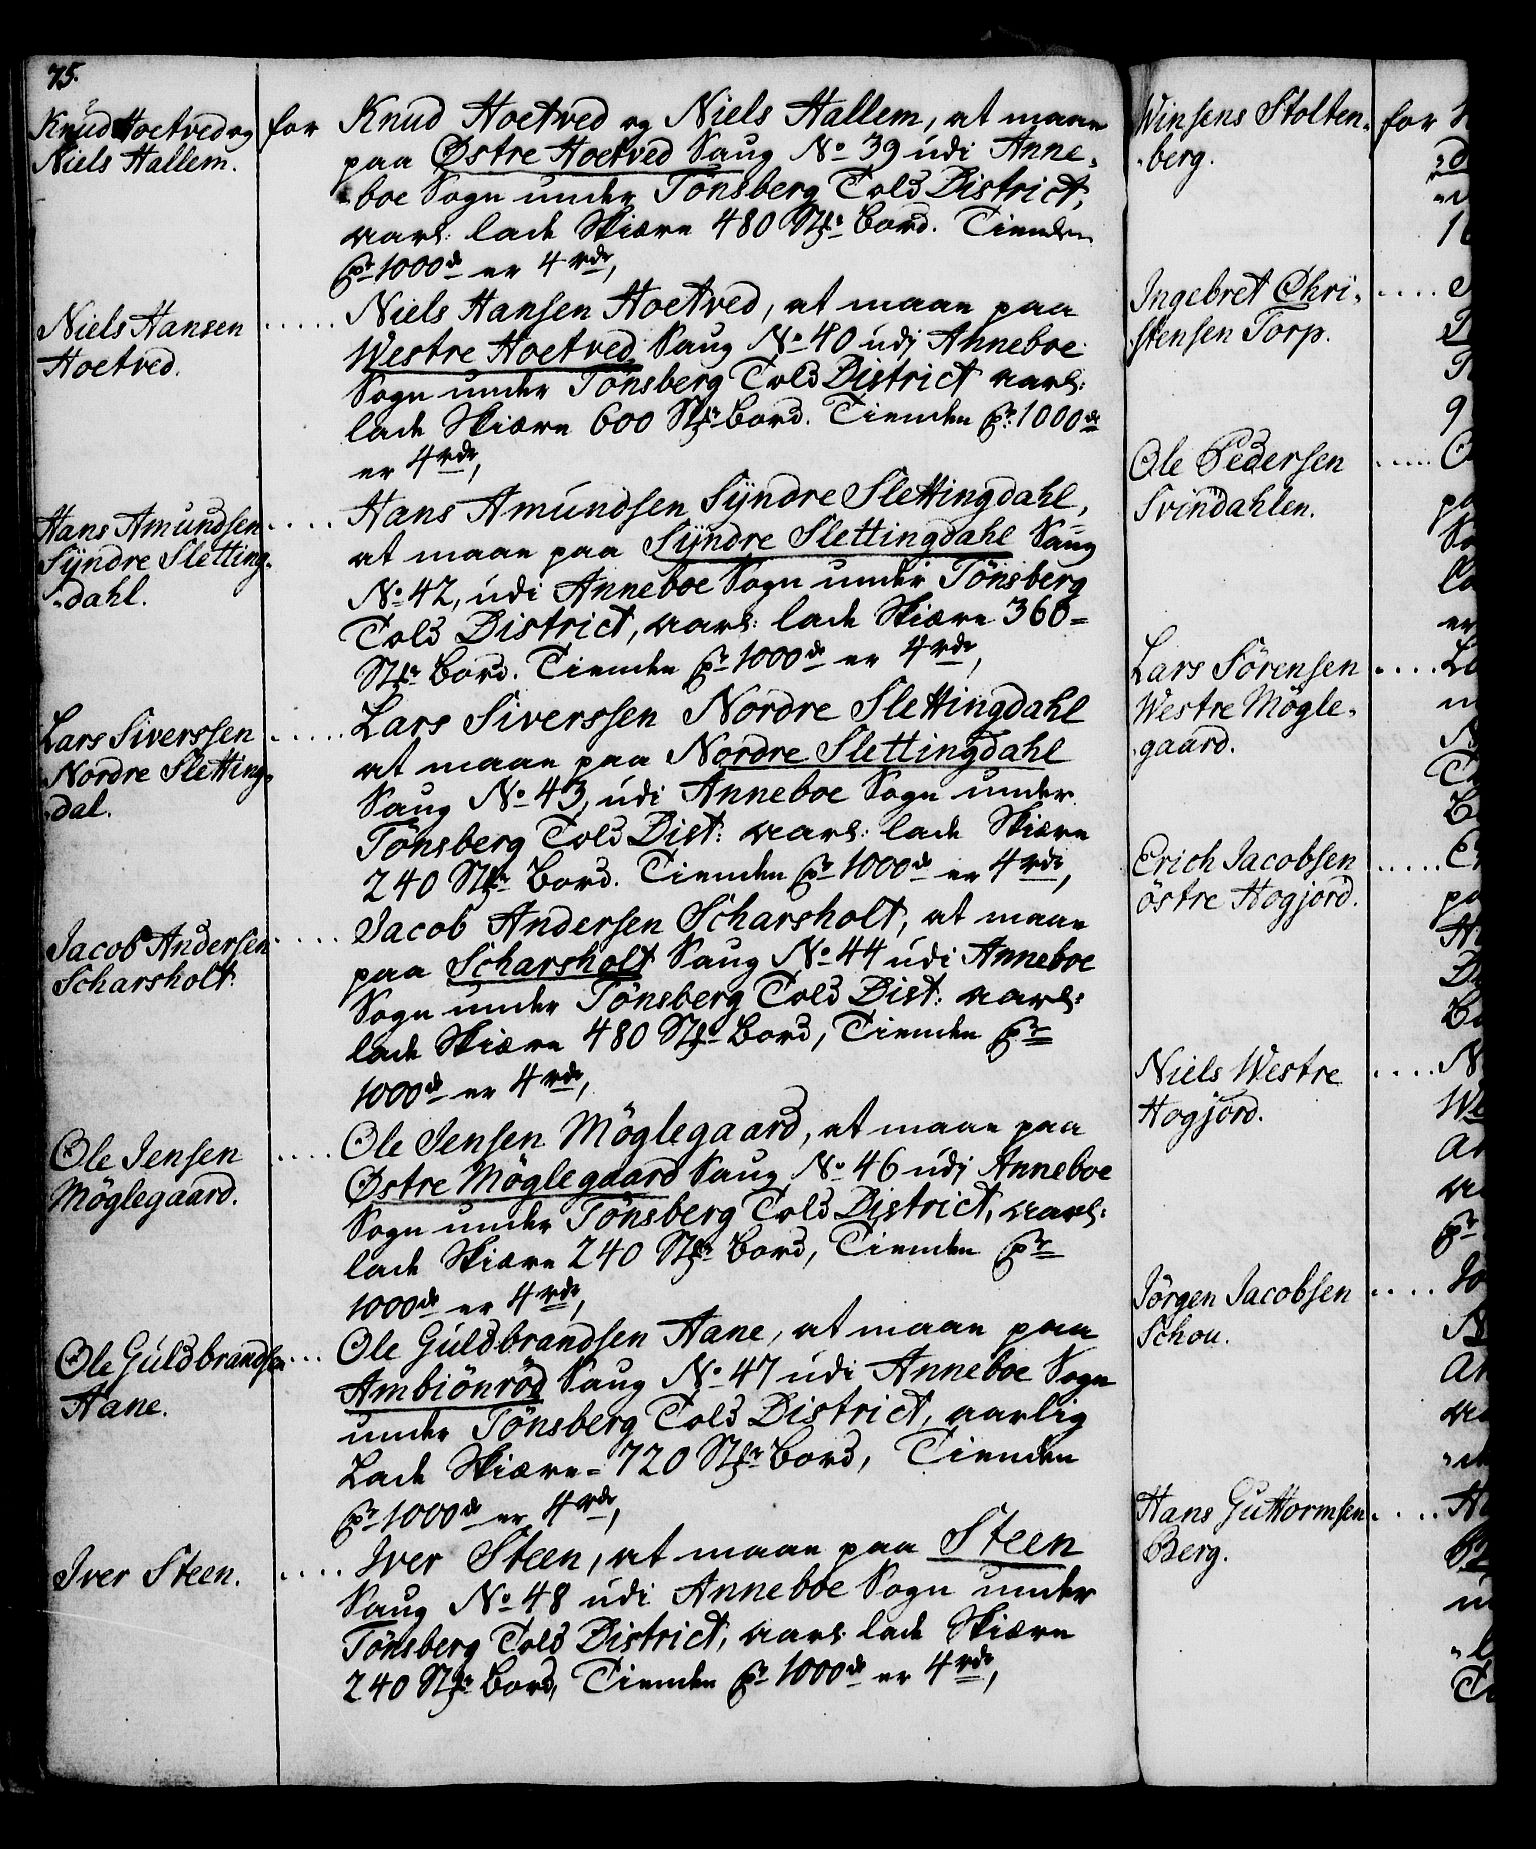 75.
Knud Hoetved og
Niels Hallem.
for Knud Hoetved og Niels Hallem, at maae
paa Østre Hoetved Saug No 39 udi Anne-
-boe Sogn under Tönsberg Told District,
aarl: lade Skiære 480 Stkr Bord. Tienden
pr 1000de er 4 rdr,
Niels Hansen
Hoetved.
..... Niels Hansen Hoetved, at maae paa
Westre Hoetved Saug No 40 udi Anneboe
Sogn under Tönsberg Told District aarl:
lade Skiære 600 Stkr Bord. Tienden pr: 1000de
er 4 rdr,
Hans Amundsen
Syndre Sletting-
-dahl.
.... Hans Amundsen Syndre Slettingdahl,
at maae paa Syndre Slettingdahl Saug
No 42, udi Anneboe Sogn under Tönsberg
Told District, aarl: lade Skiære 360=
Stkr Bord. Tienden pr 1000de er 4 rdr,
Lars Siverssen
Nordre Sletting-
-dal.
..... Lars Siverssen Nordre Slettingdahl
at maae paa Nordre Slettingdahl
Saug No 43, udi Anneboe Sogn under
Tönsberg Told Dist: aarl: lade Skiære
240 Stkr Bord. Tienden pr 1000de er 4 rdr,
Jacob Andersen
Scharsholt.
.... Jacob Andersen Scharsholt, at maae
paa Scharsholt Saug No 44 udi Anneboe
Sogn under Tönsberg Told Dist: aarl:
lade Skiære 480 Stkr Bord, Tienden pr
1000de er 4 rdr,
Ole Jensen
Möglegaard.
.... Ole Jensen Möglegaard, at maae paa
Østre Möglegaard Saug No 46 udi Anneboe
Sogn under Tönsberg Told District, aarl:
lade Skiære 240 Stkr Bord, Tienden pr
1000de er 4 rdr,
Ole Guldbrandsen
Aane.
... Ole Guldbrandsen Aane, at maae paa
Ambiönröd Saug No 47 udi Anneboe Sogn
under Tönsberg Told District, aarlig
Lade Skiære = 720 Stkr Bord, Tienden
pr 1000de er 4 rdr,
Iver Steen.
.... Iver Steen, at maae paa Steen
Saug No 48 udi Anneboe Sogn under
Tönsberg Told District, aarl: lade Skiære
240 Stkr Bord, Tienden pr 1000de er 4 rdr,
Winsens Stolten-
-berg.
for
Ingebret Chri-
stensen Torp.
Ole Pedersen
Svindahlen.
Lars Sörensen
Westre Mögle-
-gaard.
Erich Jacobsen
östre Hogjord.
Niels Westre
Hogjord.
Jörgen Jacobsen
Schou.
Hans Guttormsen
Berg.